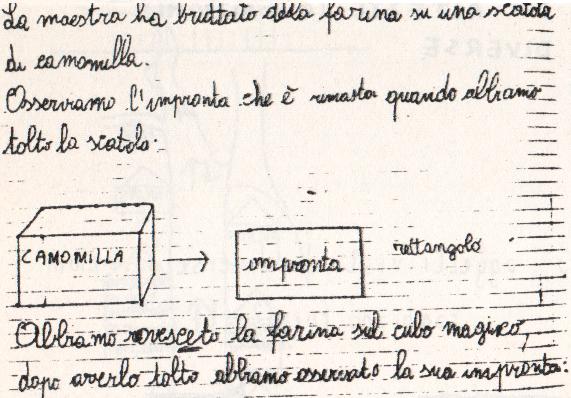 La maestra ha buttato della farina su una scatola
di camomilla.
Osserviamo l'impronta che è rimasta quando abbiamo
tolto la scatola.
CAMOMILLA
impronta
rettangolo
Abbiamo rovesceto la farina sul cubo magico,
dopo averlo tolto abbiamo osservato la sua impronta: